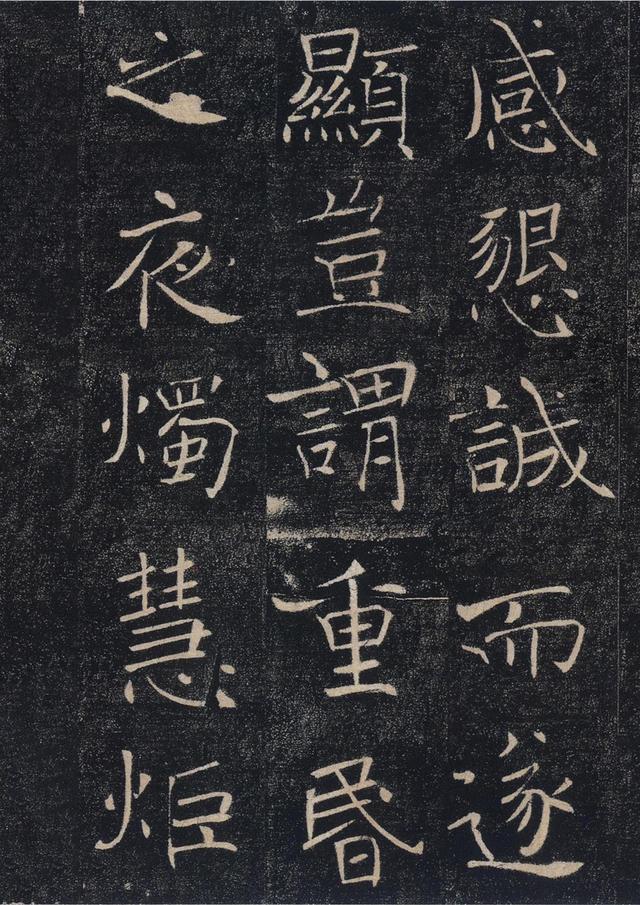 感懇誠而遂
顯豈謂重昏
之夜燭慧炬